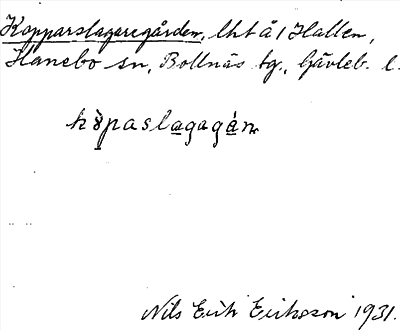 Kopparslagaregården, lht å 1 Hallen,
Hanebo sn, Bollnäs tg., Gävleb. l.
köpaslagagán
Nils Erik Eriksson 1931.